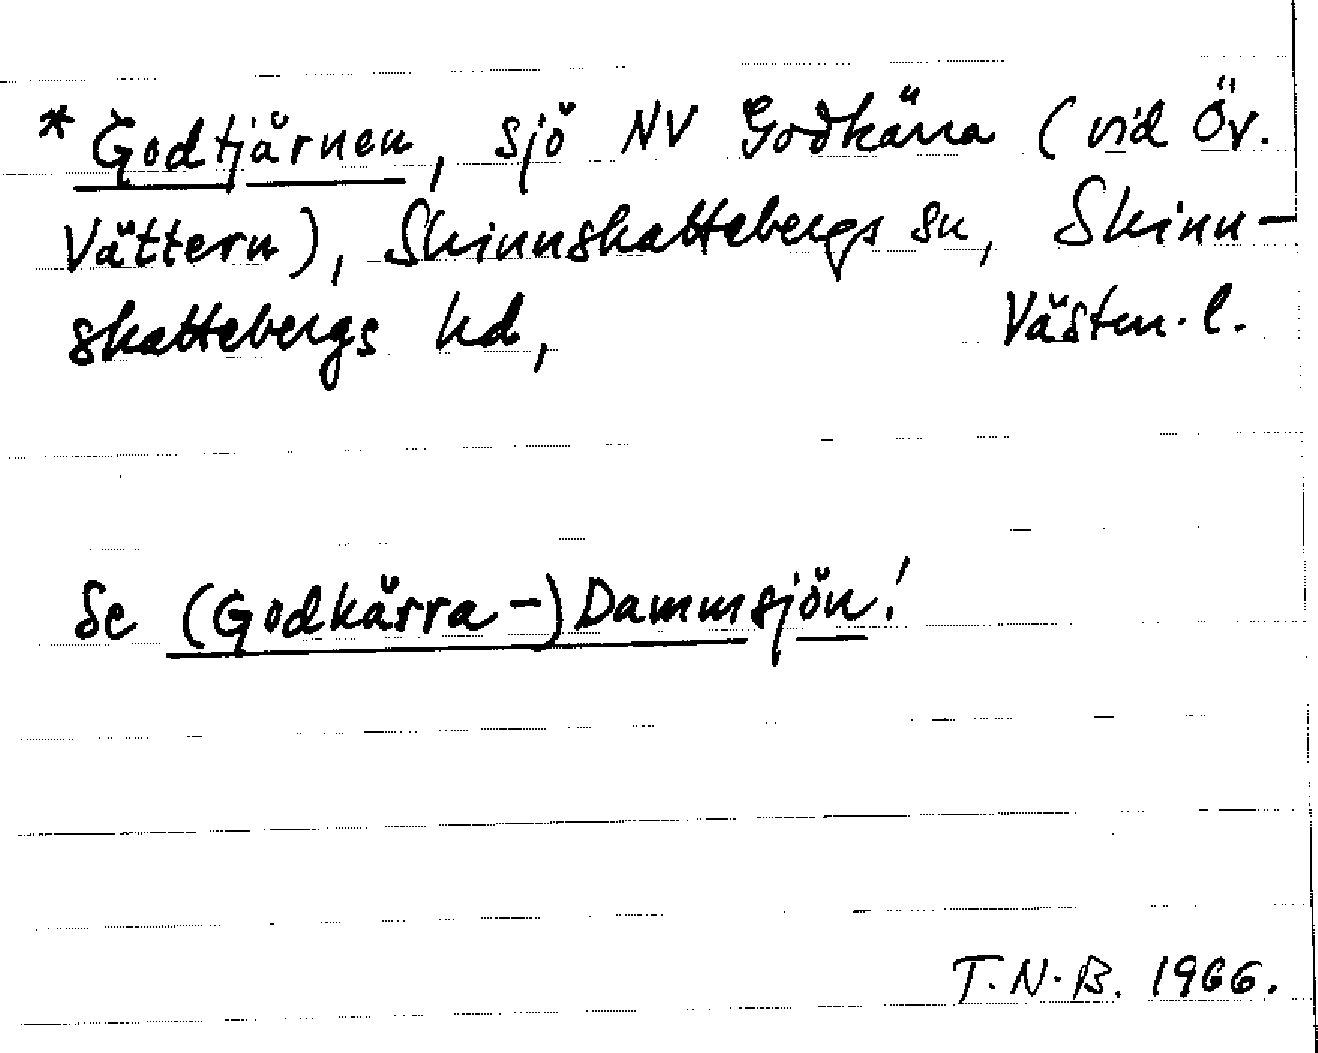 * Godtjärnen, sjö NV Godkärra (vid Öv.
Vättern), Skinnskattebergs sn, Skinn-
skattebergs hd, Västm. l.
Se (Godkärra-)Dammsjön!
T.N.B. 1966.